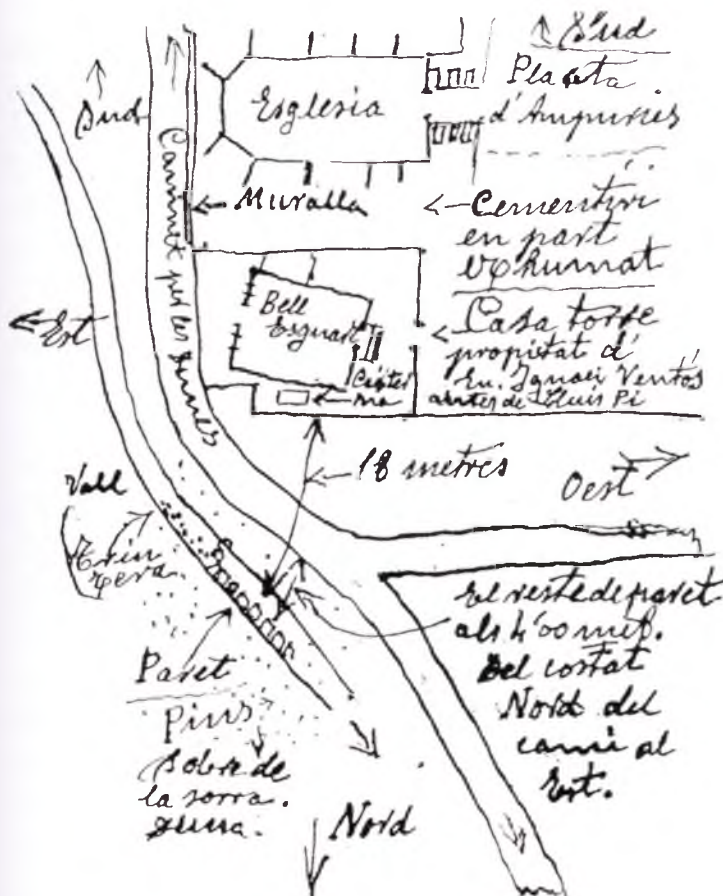 Sud
Placeta
d'Ampuries
Esglesia
Sud
Camí per les dunes
Muralla
Cementiri
en part
exhumat
Est
Bell
Esguart
Cister
na
Casa torre
propietat d'
En. Ignaci Ventós
antes de Lluis Pi
18 metres
Oest
Vall
Trin
xera
Paret
Pins
Sobre de
la sorra.
duna.
Nord
El reste de paret
als 4'00 met.
del costat
Nord del
camí al
Est.